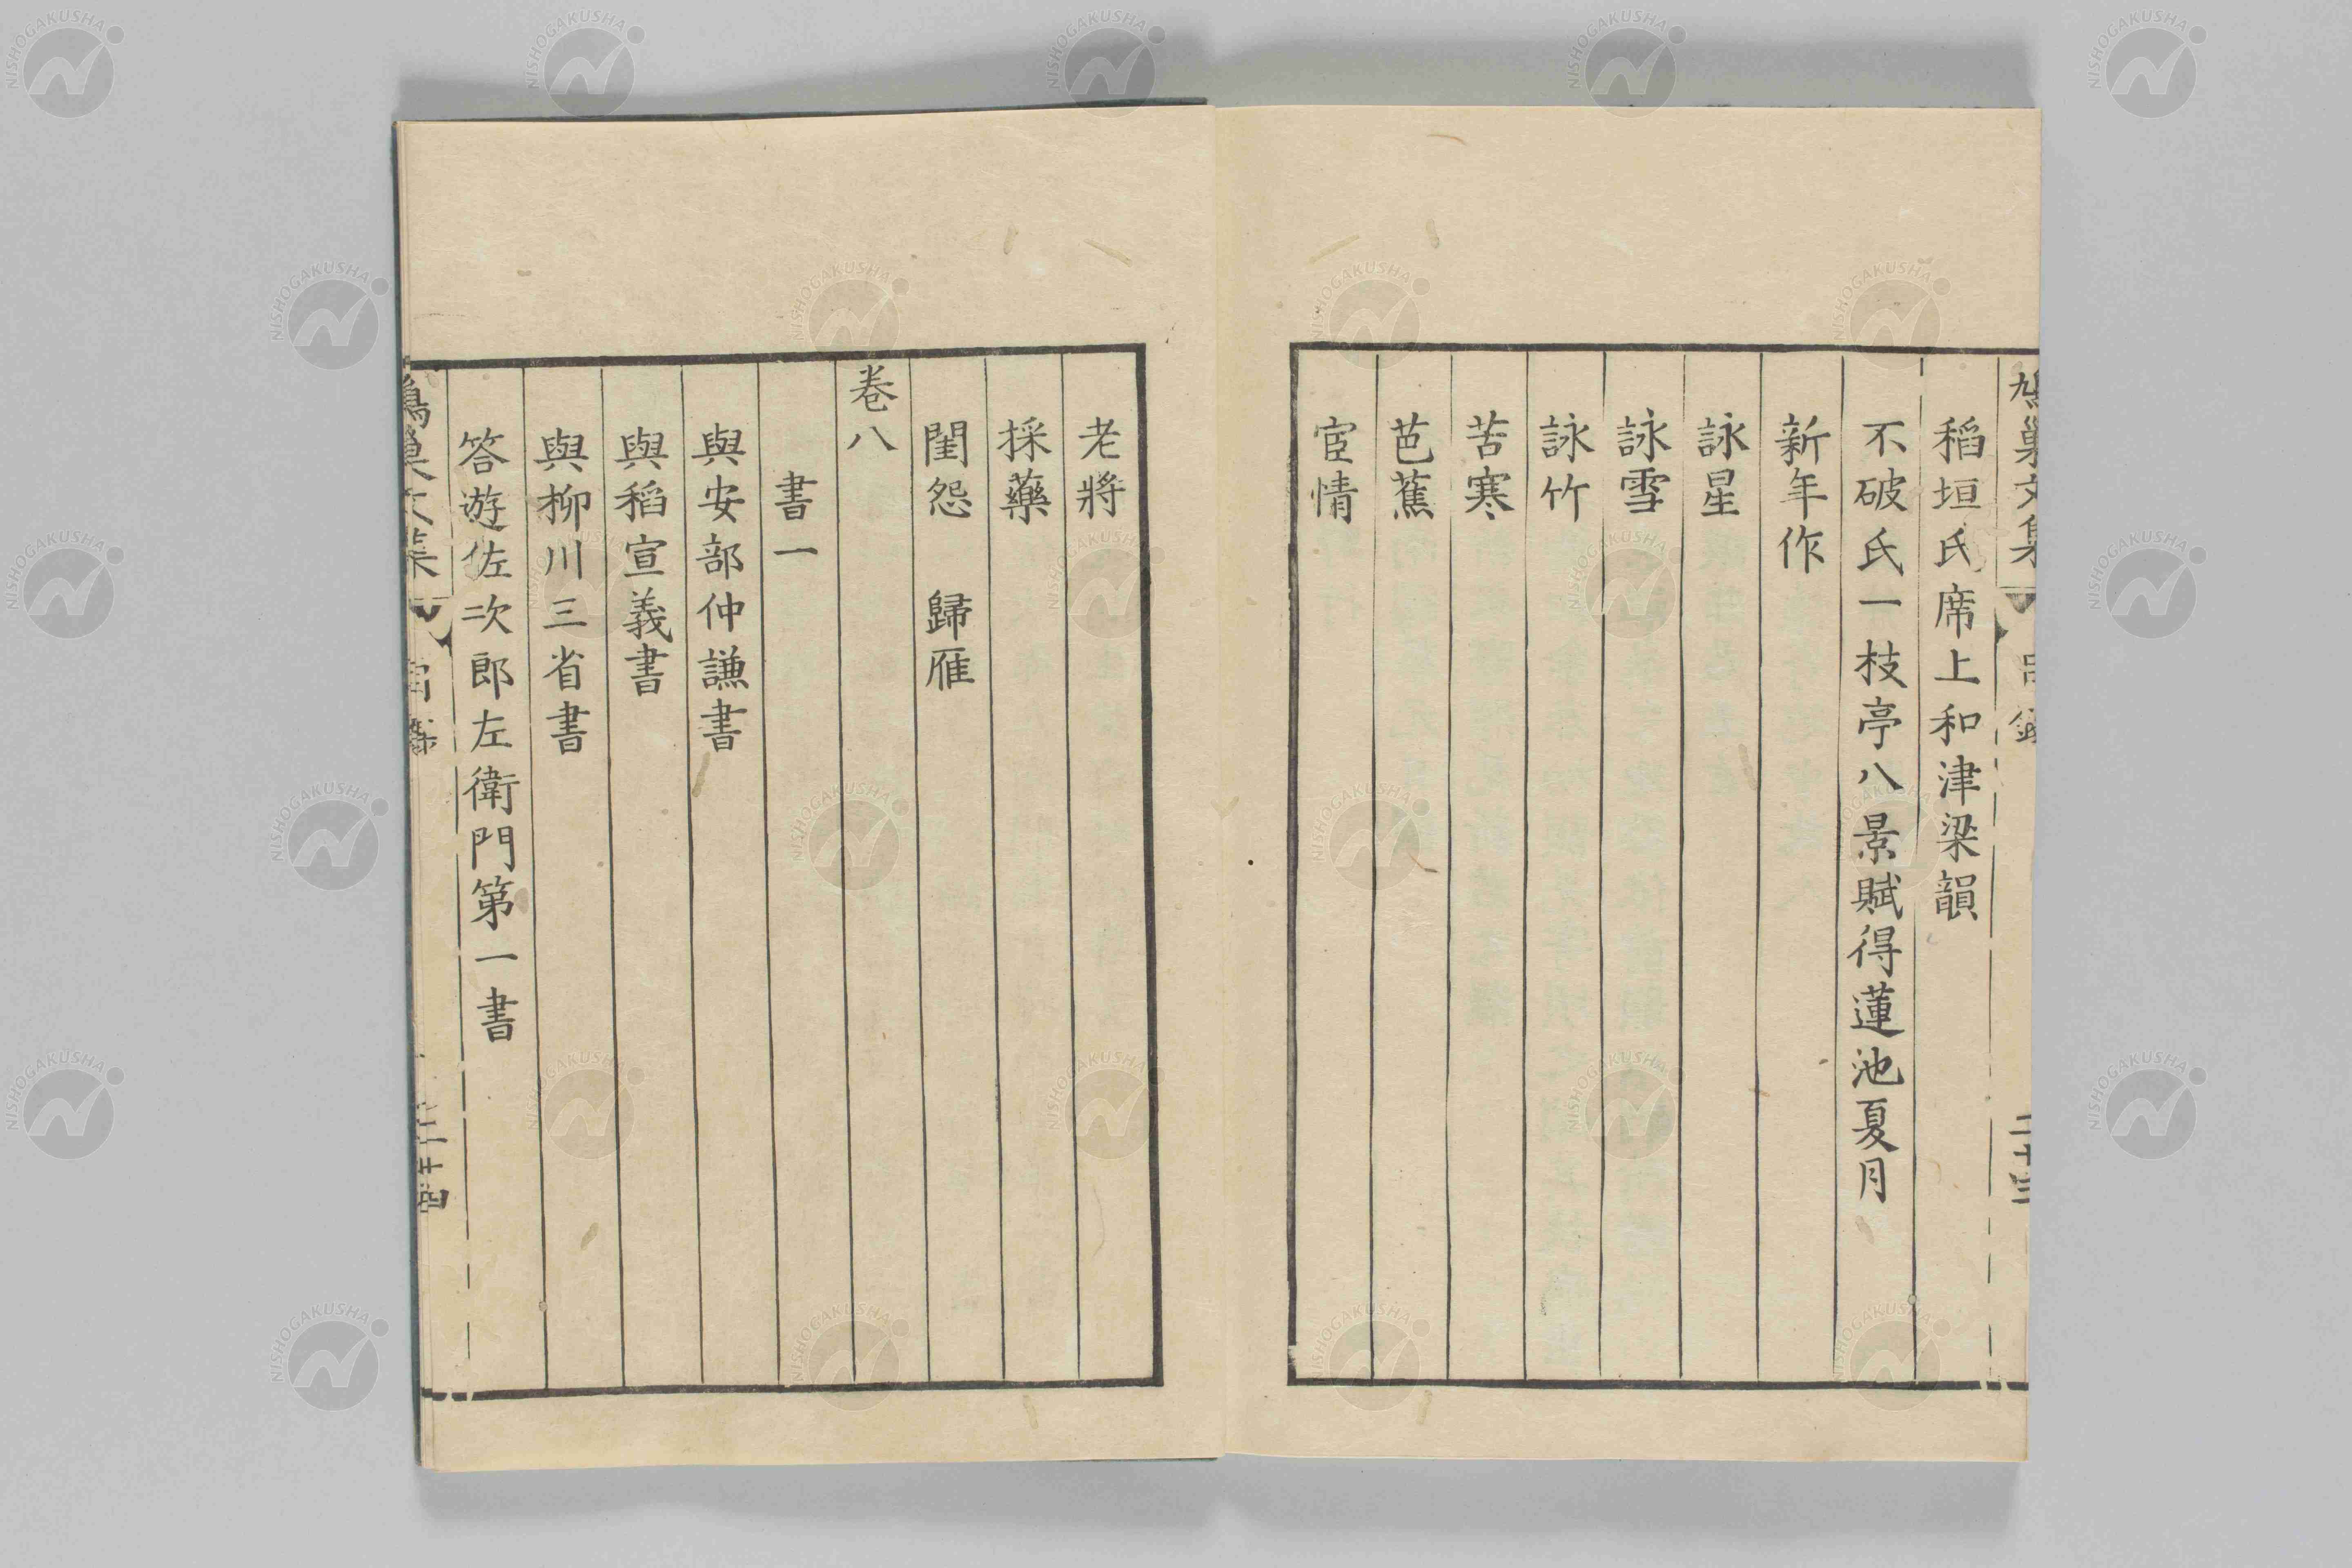 鳩巢文集 目錄 二十三
稻垣氏席上和津梁韻
不破氏一枝亭八景賦得蓮池夏月
新年作
詠星
詠雪
詠竹
苦寒
芭蕉
宦情
老將
採藥
閨怨 歸雁
卷八
書一
與安部仲謙書
與稻宣義書
與柳川三省書
答遊佐次郎左衛門第一書
鳩巢文集 目錄 二十四
NISHOGAKUSHA